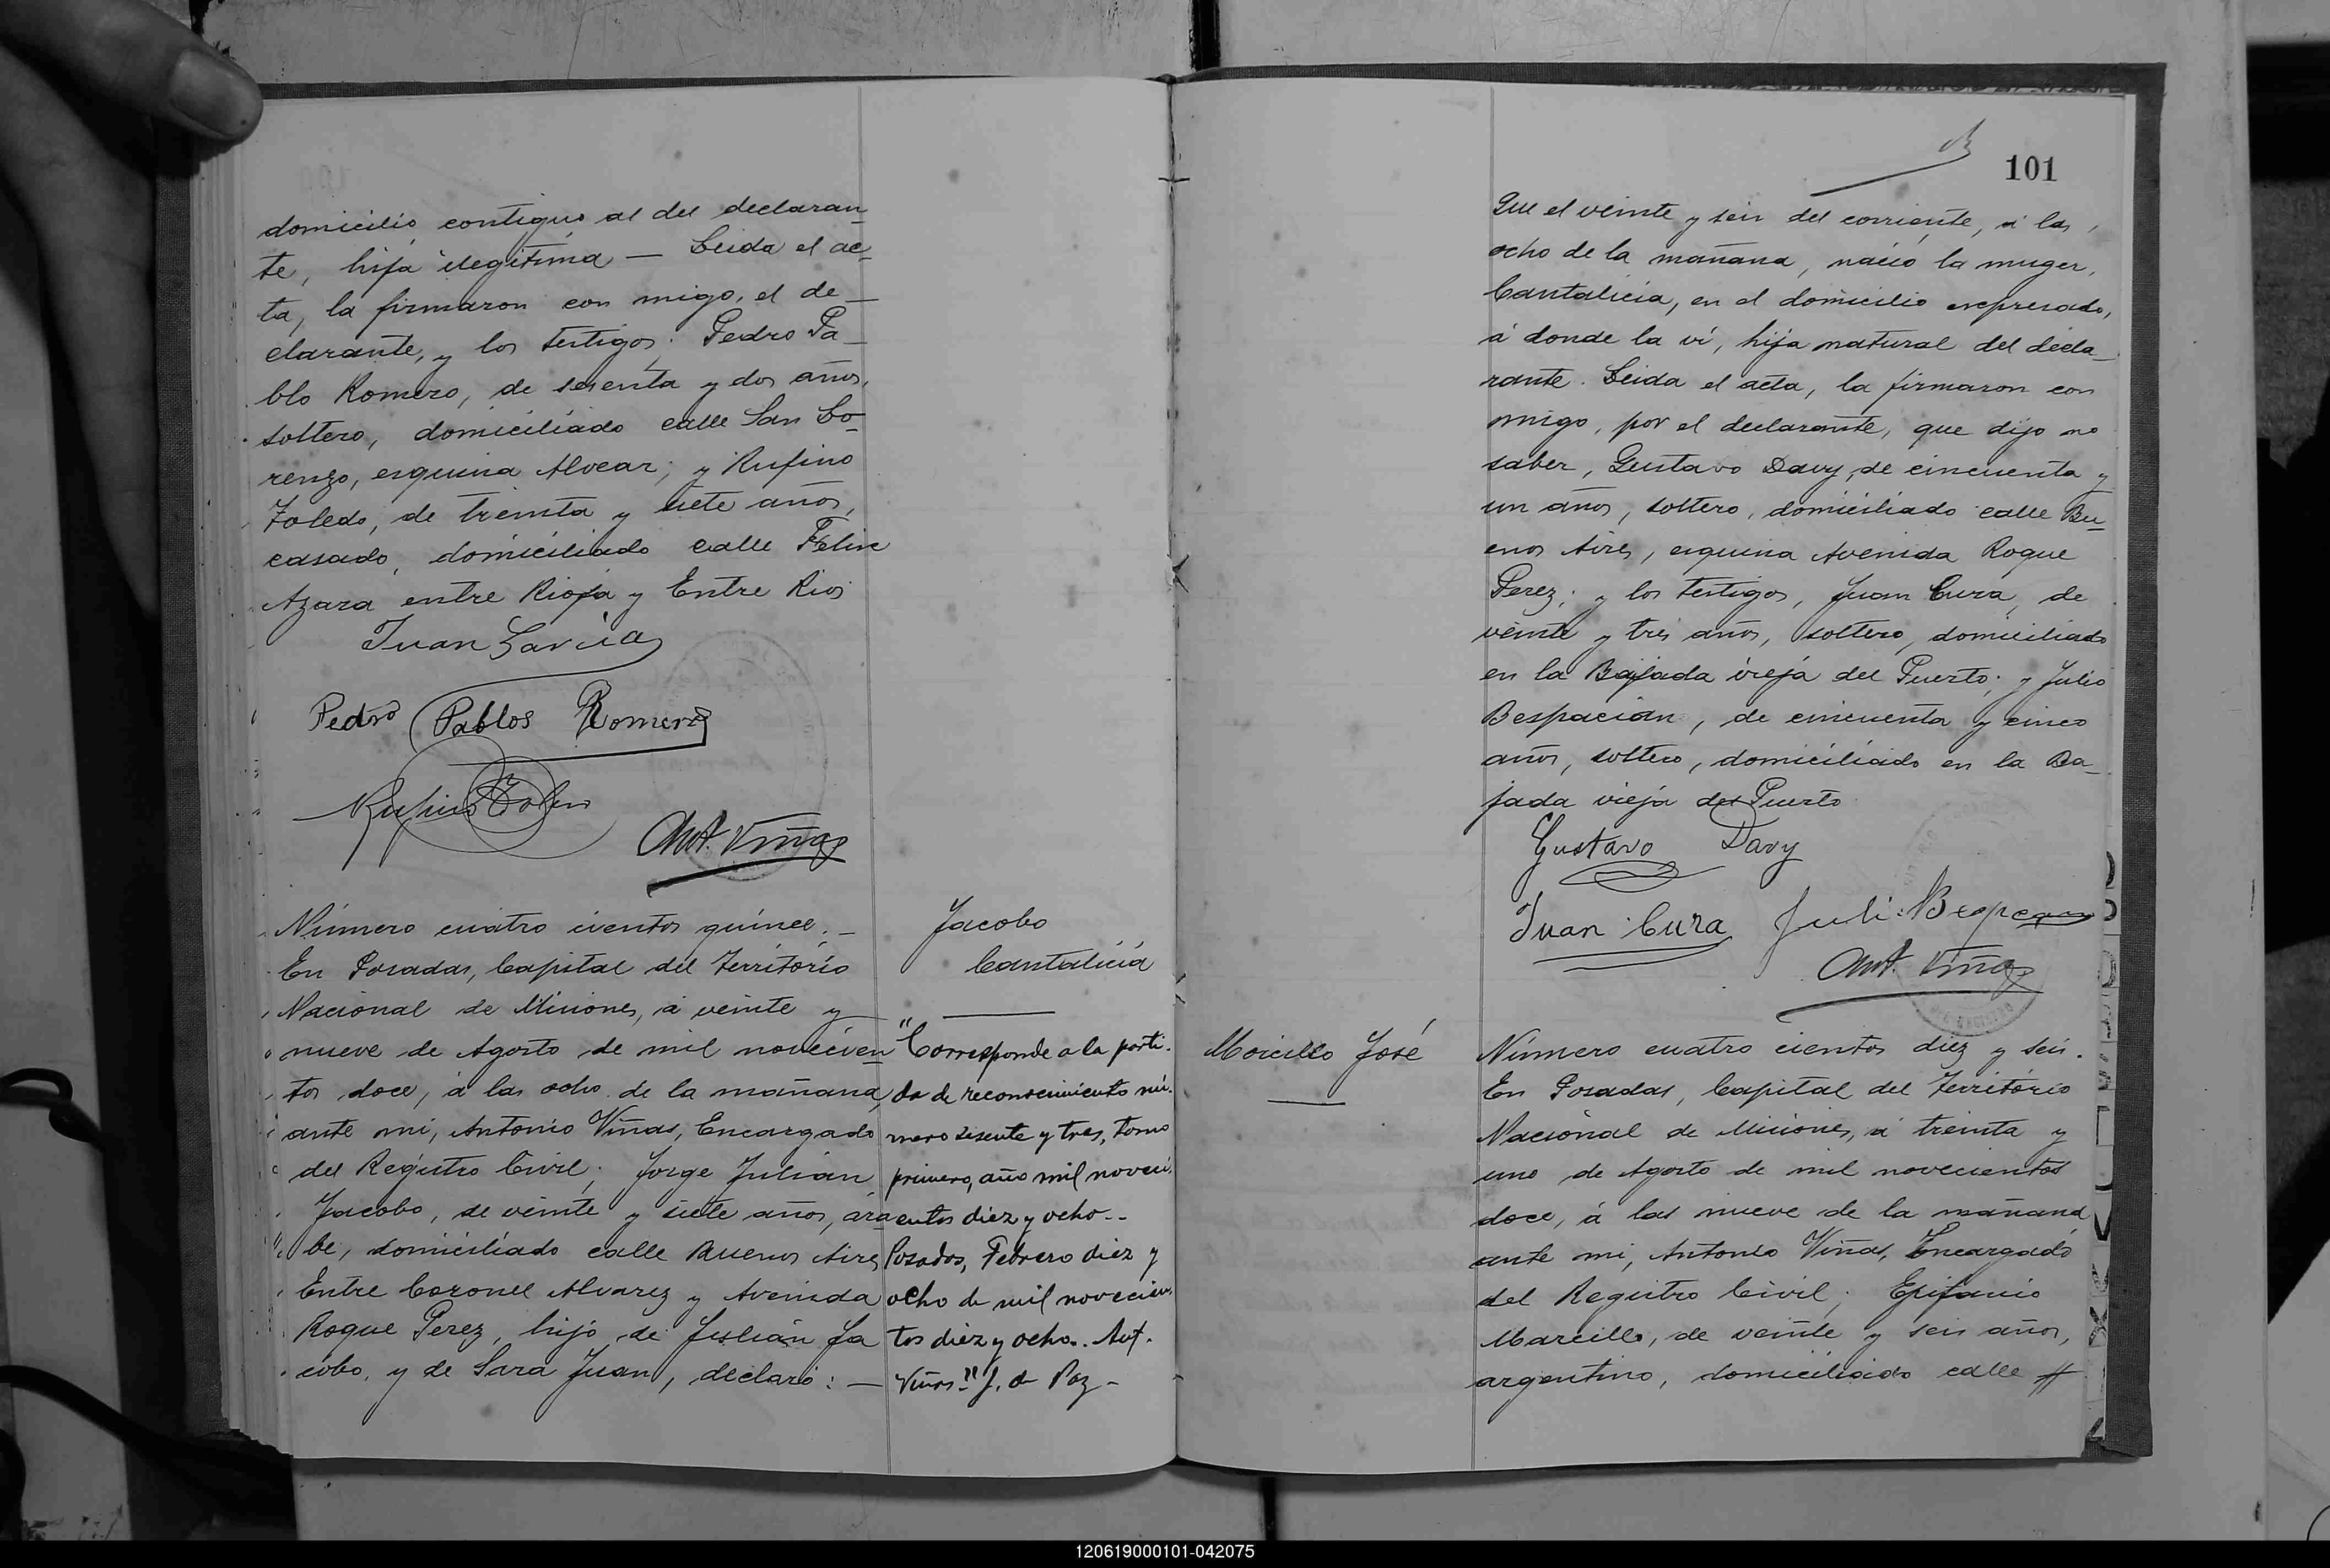 domicilio contiguo al del declaran_
te, hija ilegitima — Leida el ac_
ta, la firmaron con migo, el de_
clarante, y los testigos: Pedro Pa_
blo Romero, de sesenta y dos años,
soltero, domiciliado calle San Lo_
renzo, esquina Alvear; y Rufino
Toledo, de treinta y siete años,
casado, domiciliado calle Felix
Azara entre Rioja y Entre Rios
Juan Garcia
Pedro Pablos Romero
Rufino Toledo
Ant. Viñas
Número cuatro cientos quince. _
En Posadas, Capital del Territorio
Nacional de Misiones, á veinte y
nueve de Agosto de mil novecien
tos doce, á las ocho de la mañana,
ante mi, Antonio Viñas, Encargado
del Registro Civil; Jorge Julián
Jacobo, de veinte y siete años, ára
be, domiciliado calle Buenos Aires
Entre Coronel Alvarez y Avenida
Roque Perez, hijo de Julián Ja
cobo, y de Sara Juan, declaró: —
Jacobo
Cantalicia
"Corresponde a la parti-
da de reconocimiento nú-
mero sesenta y tres, tomo
primero, año mil noveci-
entos diez y ocho..
Posadas, Febrero diez y
ocho de mil novecien-
tos diez y ocho.. Ant.
Viñas." J. de Paz -
101
Que el veinte y seis del corriente, á las
ocho de la mañana, nació la muger,
Cantalicia, en el domicilio expresado,
á donde la ví, hija natural del decla_
rante. Leida el acta, la firmaron con
migo, por el declarante, que dijo no
saber, Gustavo Davy, de cincuenta y
un años, soltero, domiciliado calle Bu_
enos Aires, esquina Avenida Roque
Perez; y los testigos, Juan Cura, de
veinte y tres años, soltero, domiciliado
en la Bajada vieja del Puerto; y Julio
Bespacian, de cincuenta y cinco
años, soltero, domiciliado en la Ba_
jada vieja del Puerto
Gustavo Davy
Juan Cura
Ant. Viñas
Morcillo José
Número cuatro cientos diez y seis.
En Posadas, Capital del Territorio
Nacional de Misiones, á treinta y
uno de Agosto de mil novecientos
doce, á las nueve de la mañana
ante mi, Antonio Viñas, Encargado
del Registro Civil; Epifanio
Marcillo, de veinte y seis años,
argentino, domiciliado calle
120619000101-042075